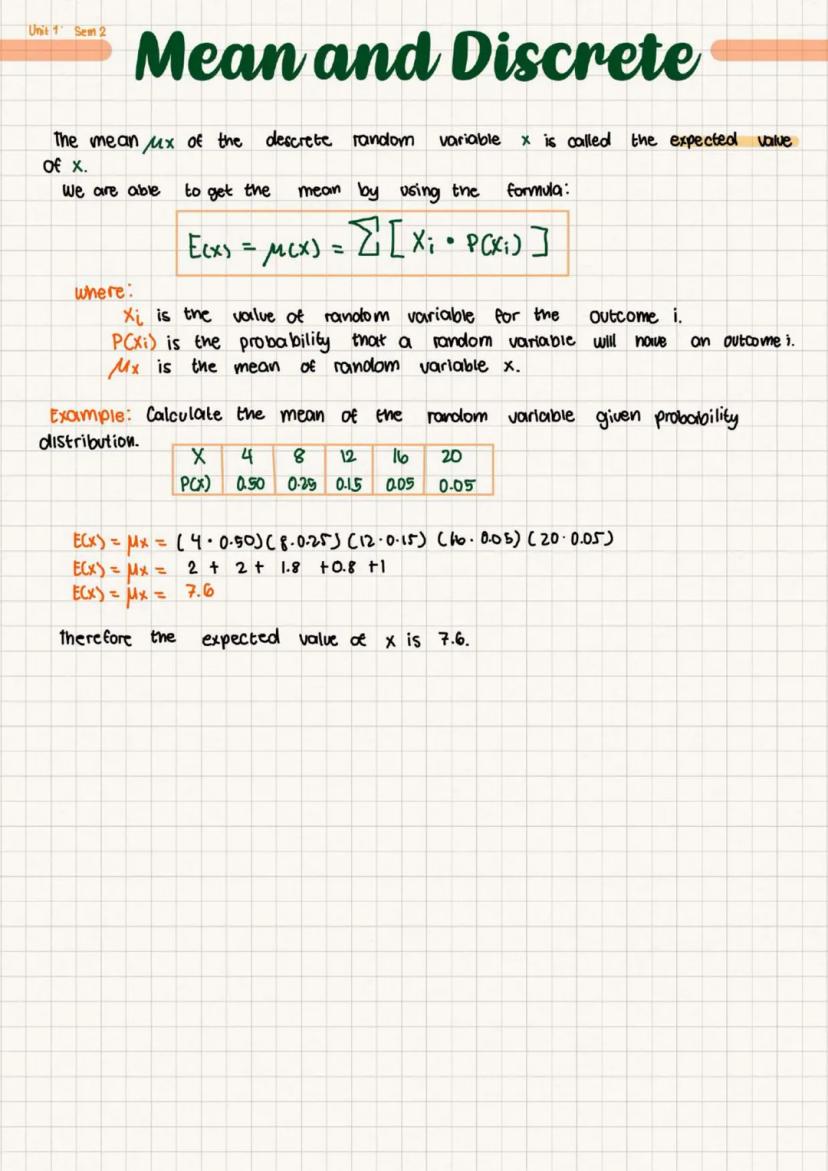 Unit 1 Sem 2
Mean and Discrete
The mean μx of the descrete random variable x is called the expected value
of x.
We are able to get the mean by using the formula:
E(x) = μ(x) = Σ [ Xi • P(Xi) ]
where:
Xi is the value of random variable for the outcome i.
P(Xi) is the probability that a random variable will have an outcome i.
μx is the mean of random variable x.
Example: Calculate the mean of the random variable given probability
distribution.
X 4 8 12 16 20
P(x) 0.50 0.25 0.15 0.05 0.05
E(x) = μx = (4 · 0.50)(8 · 0.25)(12 · 0.15) (16 · 0.05) (20 · 0.05)
E(x) = μx = 2 + 2 + 1.8 + 0.8 + 1
E(x) = μx = 7.6
therefore the expected value of x is 7.6.